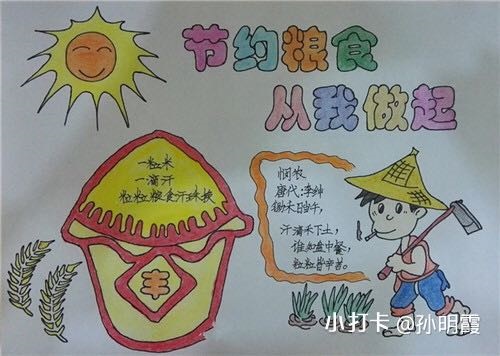 节约粮食
从我做起
一粒米
一滴汗
粒粒粮食汗珠换
丰
悯农
唐代:李绅
锄禾日当午,
汗滴禾下土,
谁知盘中餐,
粒粒皆辛苦。
小打卡 @孙明霞